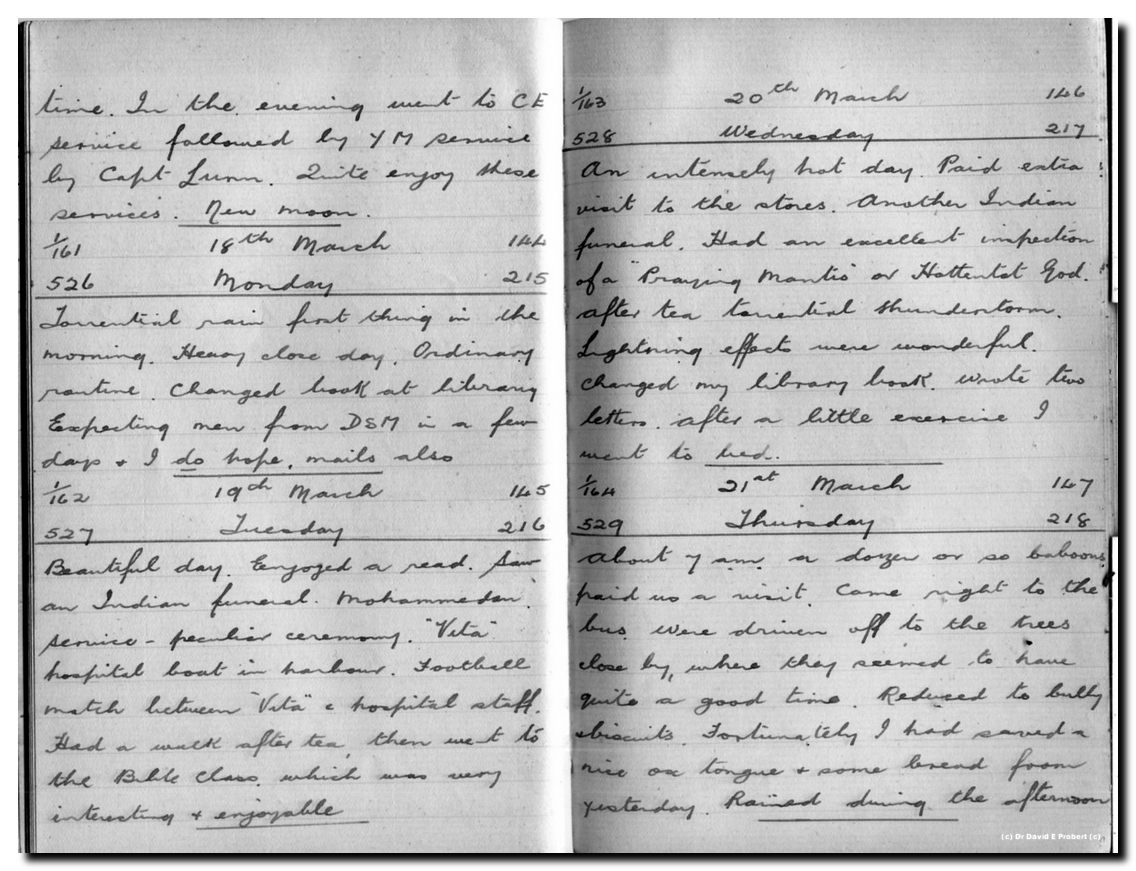 time. In the evening went to CE
service followed by YM service
by Capt Lunn. Quite enjoy these
services. New moon.
1/161 18th March 144
526 Monday 215
Torrential rain first thing in the
morning. Heavy close day. Ordinary
routine. Changed book at library
Expecting men from DSM in a few
days & I do hope, mails also
1/162 19th March 145
527 Tuesday 216
Beautiful day. Enjoyed a read. Saw
an Indian funeral. Mohammedan
service - peculiar ceremony. "Vita"
hospital boat in harbour. Football
match between "Vita" & hospital staff.
Had a walk after tea, then went to
the Bible Class, which was very
interesting & enjoyable
1/163 20th March 146
528 Wednesday 217
An intensely hot day. Paid extra
visit to the stores. Another Indian
funeral. Had an excellent inspection
of a "Praying Mantis" or Hottentot God.
After tea torrential thunderstorm.
Lightning effects were wonderful.
Changed my library book. Wrote two
letters. After a little exercise I
went to bed.
1/164 21st March 147
529 Thursday 218
About 7 am. a dozen or so baboons
paid us a visit. Came right to the
bus. Were driven off to the trees
close by, where they seemed to have
quite a good time. Reduced to bully
& biscuits. Fortunately I had saved a
nice ox tongue & some bread from
yesterday. Rained during the afternoon
(c) Dr David E Probert (c)